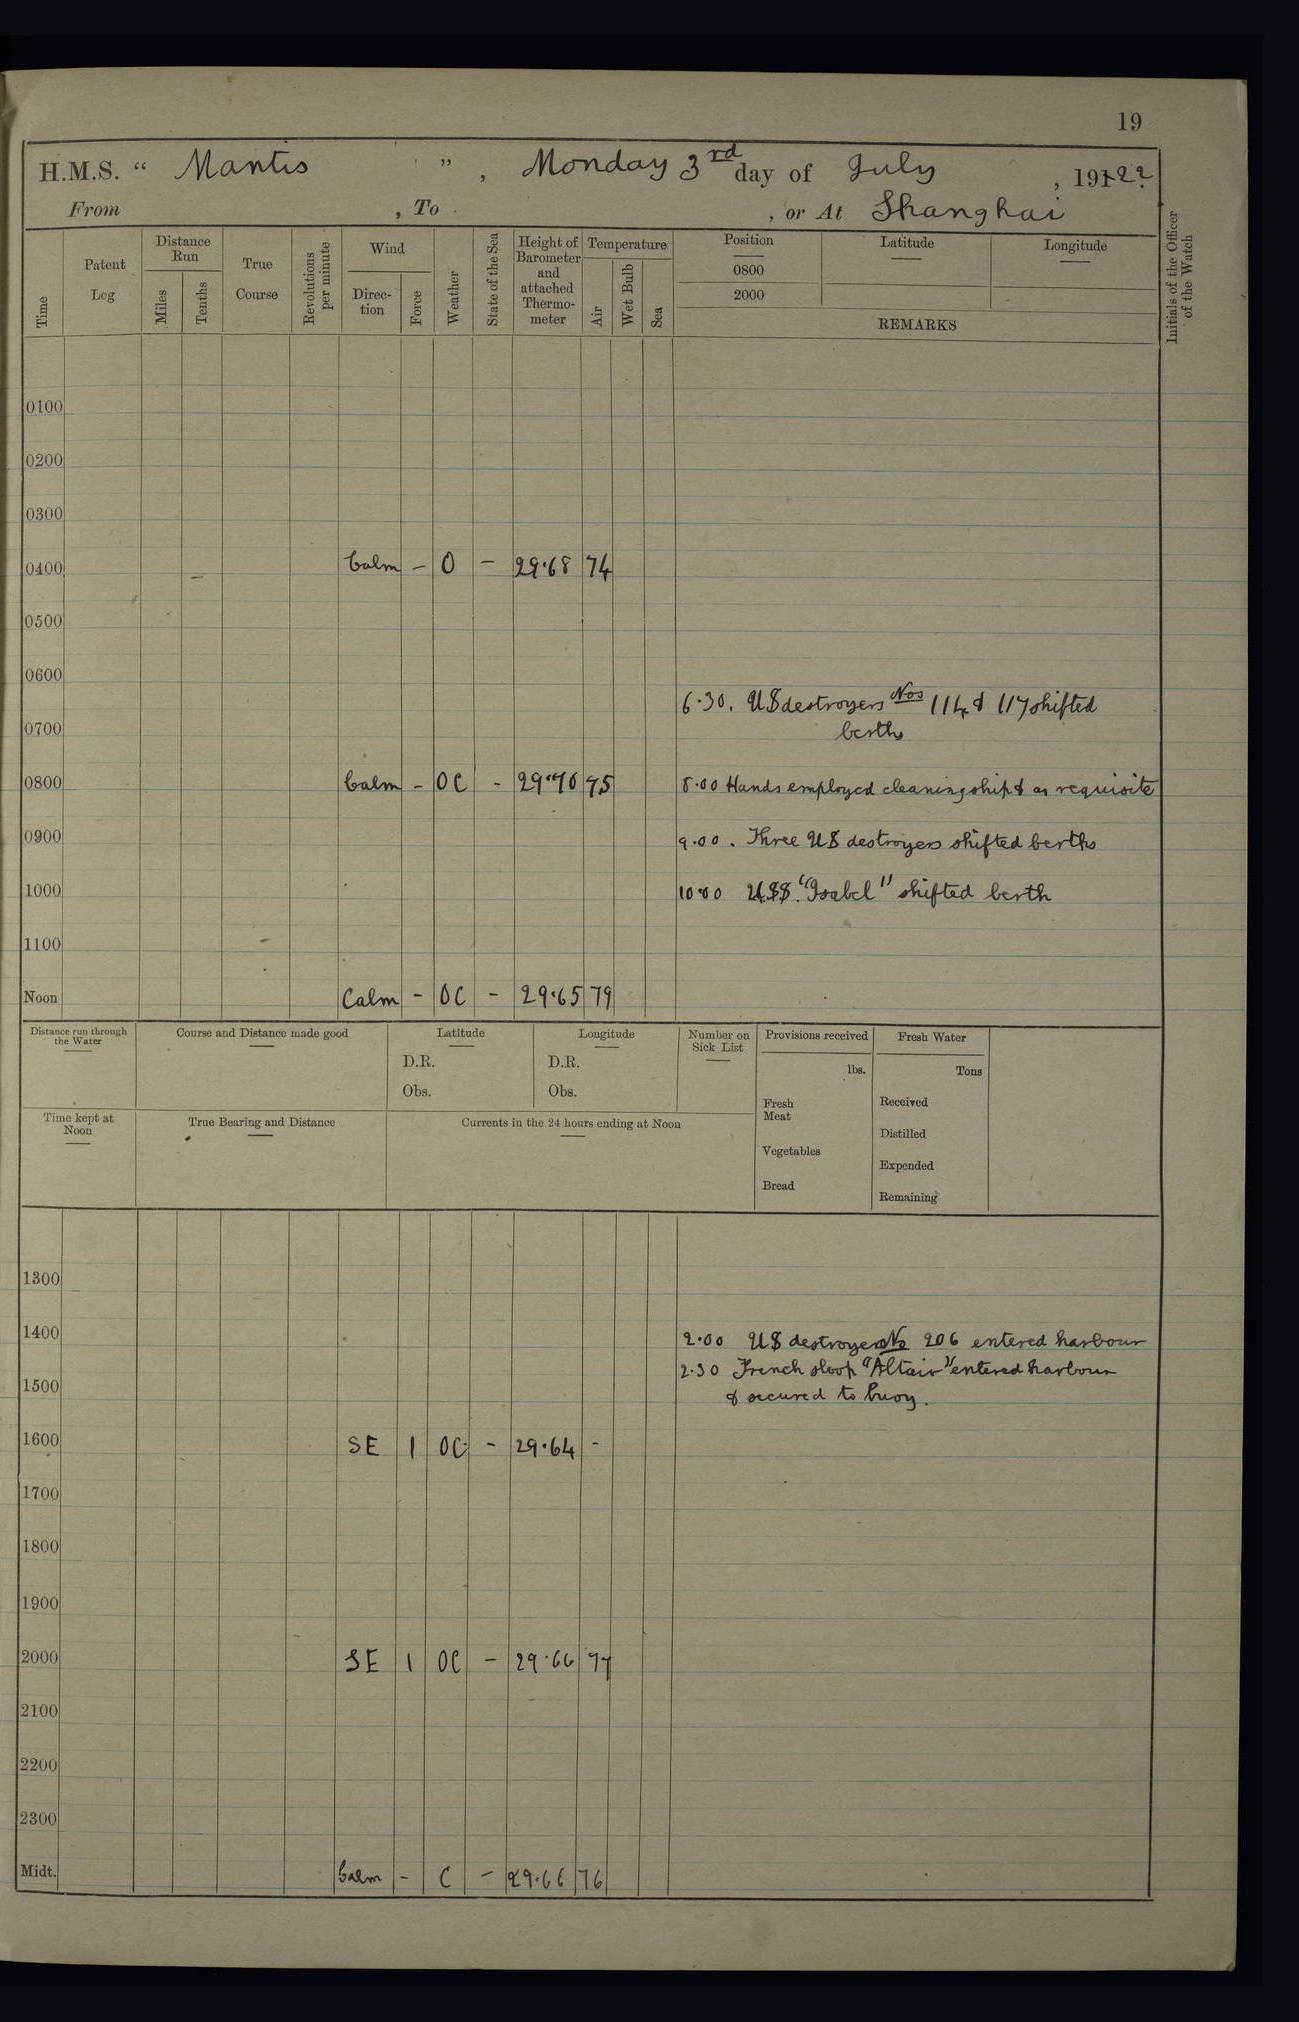 19
H.M.S. “ Mantis ” , Monday 3rd day of July , 191 22
From , To , or At Shanghai
Time Patent Log Distance Run Miles Tenths True Course Revolutions per minute Wind Direc-tion Force Weather State of the Sea Height of Barometer and attached Thermo-meter Temperature Air Wet Bulb Sea Position Latitude Longitude Initials of the Officer of the Watch
0800
2000
REMARKS
0100
0200
0300
0400 Calm - O - 29.68 74
0500
0600
6.30. US destroyers Nos 114 & 117 shifted
0700 berth
0800 Calm - OC - 29.70 75 8.00 Hands employed cleaning ship & as requisite
0900 9.00. Three US destroyers shifted berths
1000 10.00 U.S.S. "Isabel" shifted berth
1100
Noon Calm - OC - 29.65 79
Distance run through the Water Course and Distance made good Latitude Longitude Number on Sick List Provisions received Fresh Water
D.R. D.R. lbs. Tons
Obs. Obs. Fresh Meat Received
Time kept at Noon True Bearing and Distance Currents in the 24 hours ending at Noon Distilled
Vegetables Expended
Bread Remaining
1300
1400 2.00 US destroyer No 206 entered harbour
2.30 French sloop "Altair" entered harbour
1500 & secured to buoy.
1600 SE 1 OC - 29.64 -
1700
1800
1900
2000 SE 1 OC - 29.66 77
2100
2200
2300
Midt. Calm - C - 29.66 76